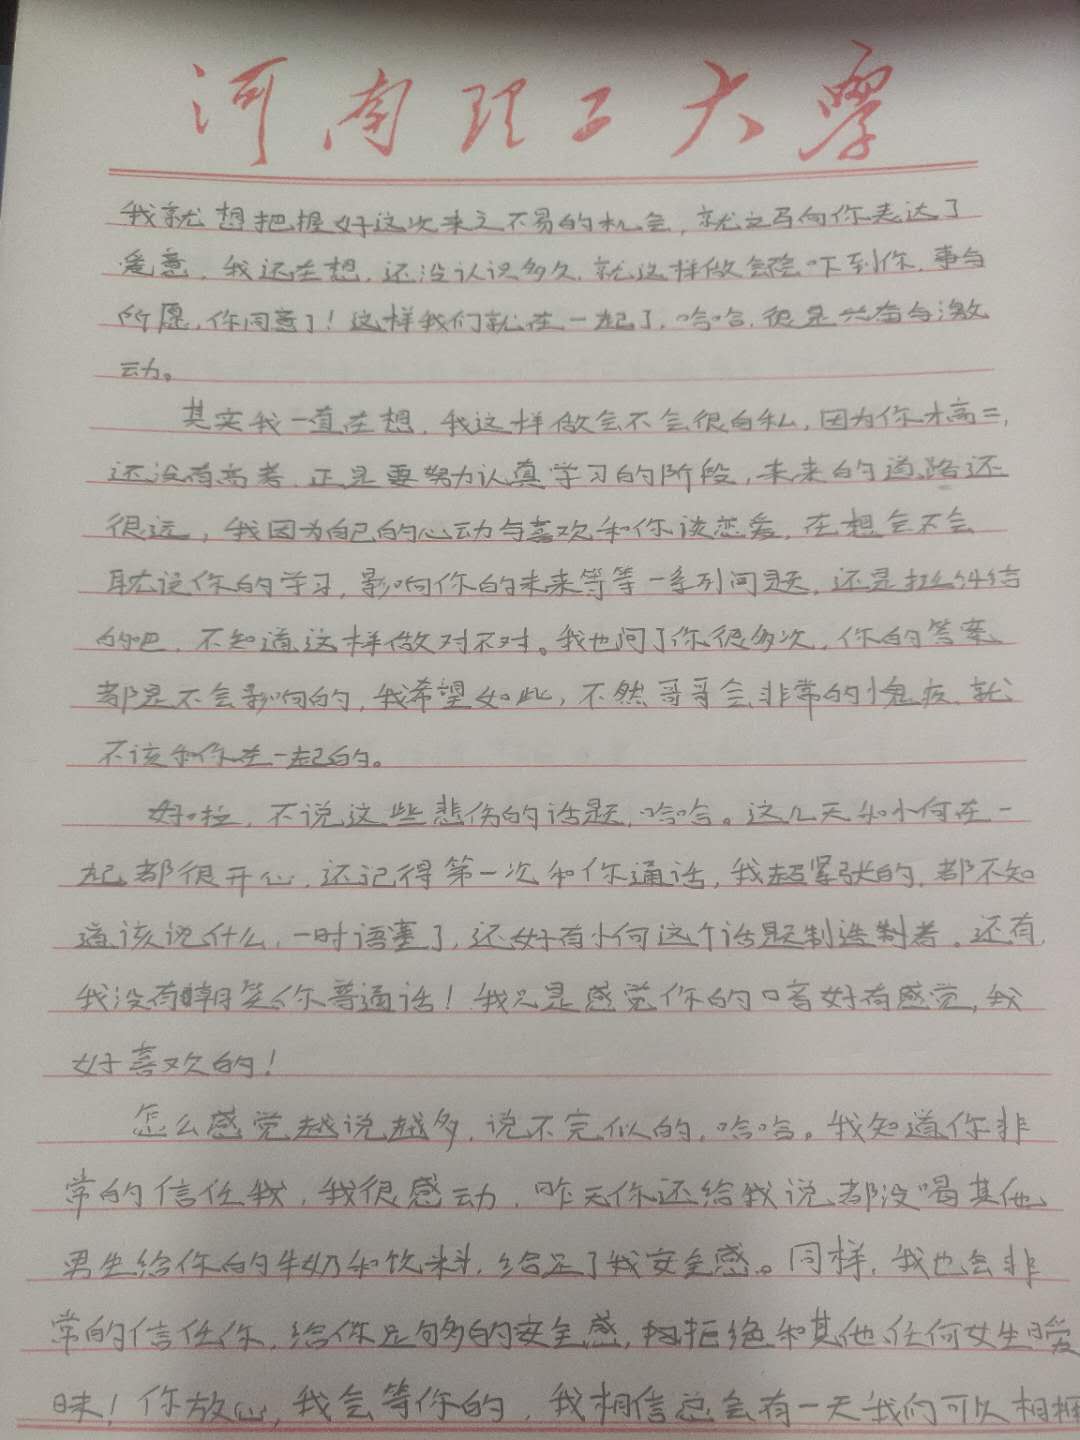 河南理工大学
我就想把握好这次来之不易的机会，就立马向你表达了
爱意，我还在想，还没认识多久，就这样做会吓到你，事与
所愿，你同意了！这样我们就在一起了，哈哈，很是兴奋与激
动。
其实我一直在想，我这样做会不会很自私，因为你才高二，
还没有高考，正是要努力认真学习的阶段，未来的道路还
很远，我因为自己的心动与喜欢和你谈恋爱，在想会不会
耽误你的学习，影响你的未来等等一系列问题，还是挺纠结
的吧，不知道这样做对不对。我也问了你很多次，你的答案
都是不会影响的，我希望如此，不然哥哥会非常的愧疚，就
不该和你在一起的。
好啦，不说这些悲伤的话题，哈哈。这几天和小何在一
起都很开心，还记得第一次和你通话，我超紧张的，都不知
道该说什么，一时语塞了，还好有小何这个话题制造制者。还有，
我没有嘲笑你普通话！我只是感觉你的口音好有感觉，我
好喜欢的！
怎么感觉越说越多，说不完似的，哈哈。我知道你非
常的信任我，我很感动，昨天你还给我说都没喝其他
男生给你的牛奶和饮料，给足了我安全感。同样，我也会非
常的信任你，给你足够多的安全感，拒绝和其他任何女生暧
昧！你放心，我会等你的，我相信总会有一天我们可以相拥